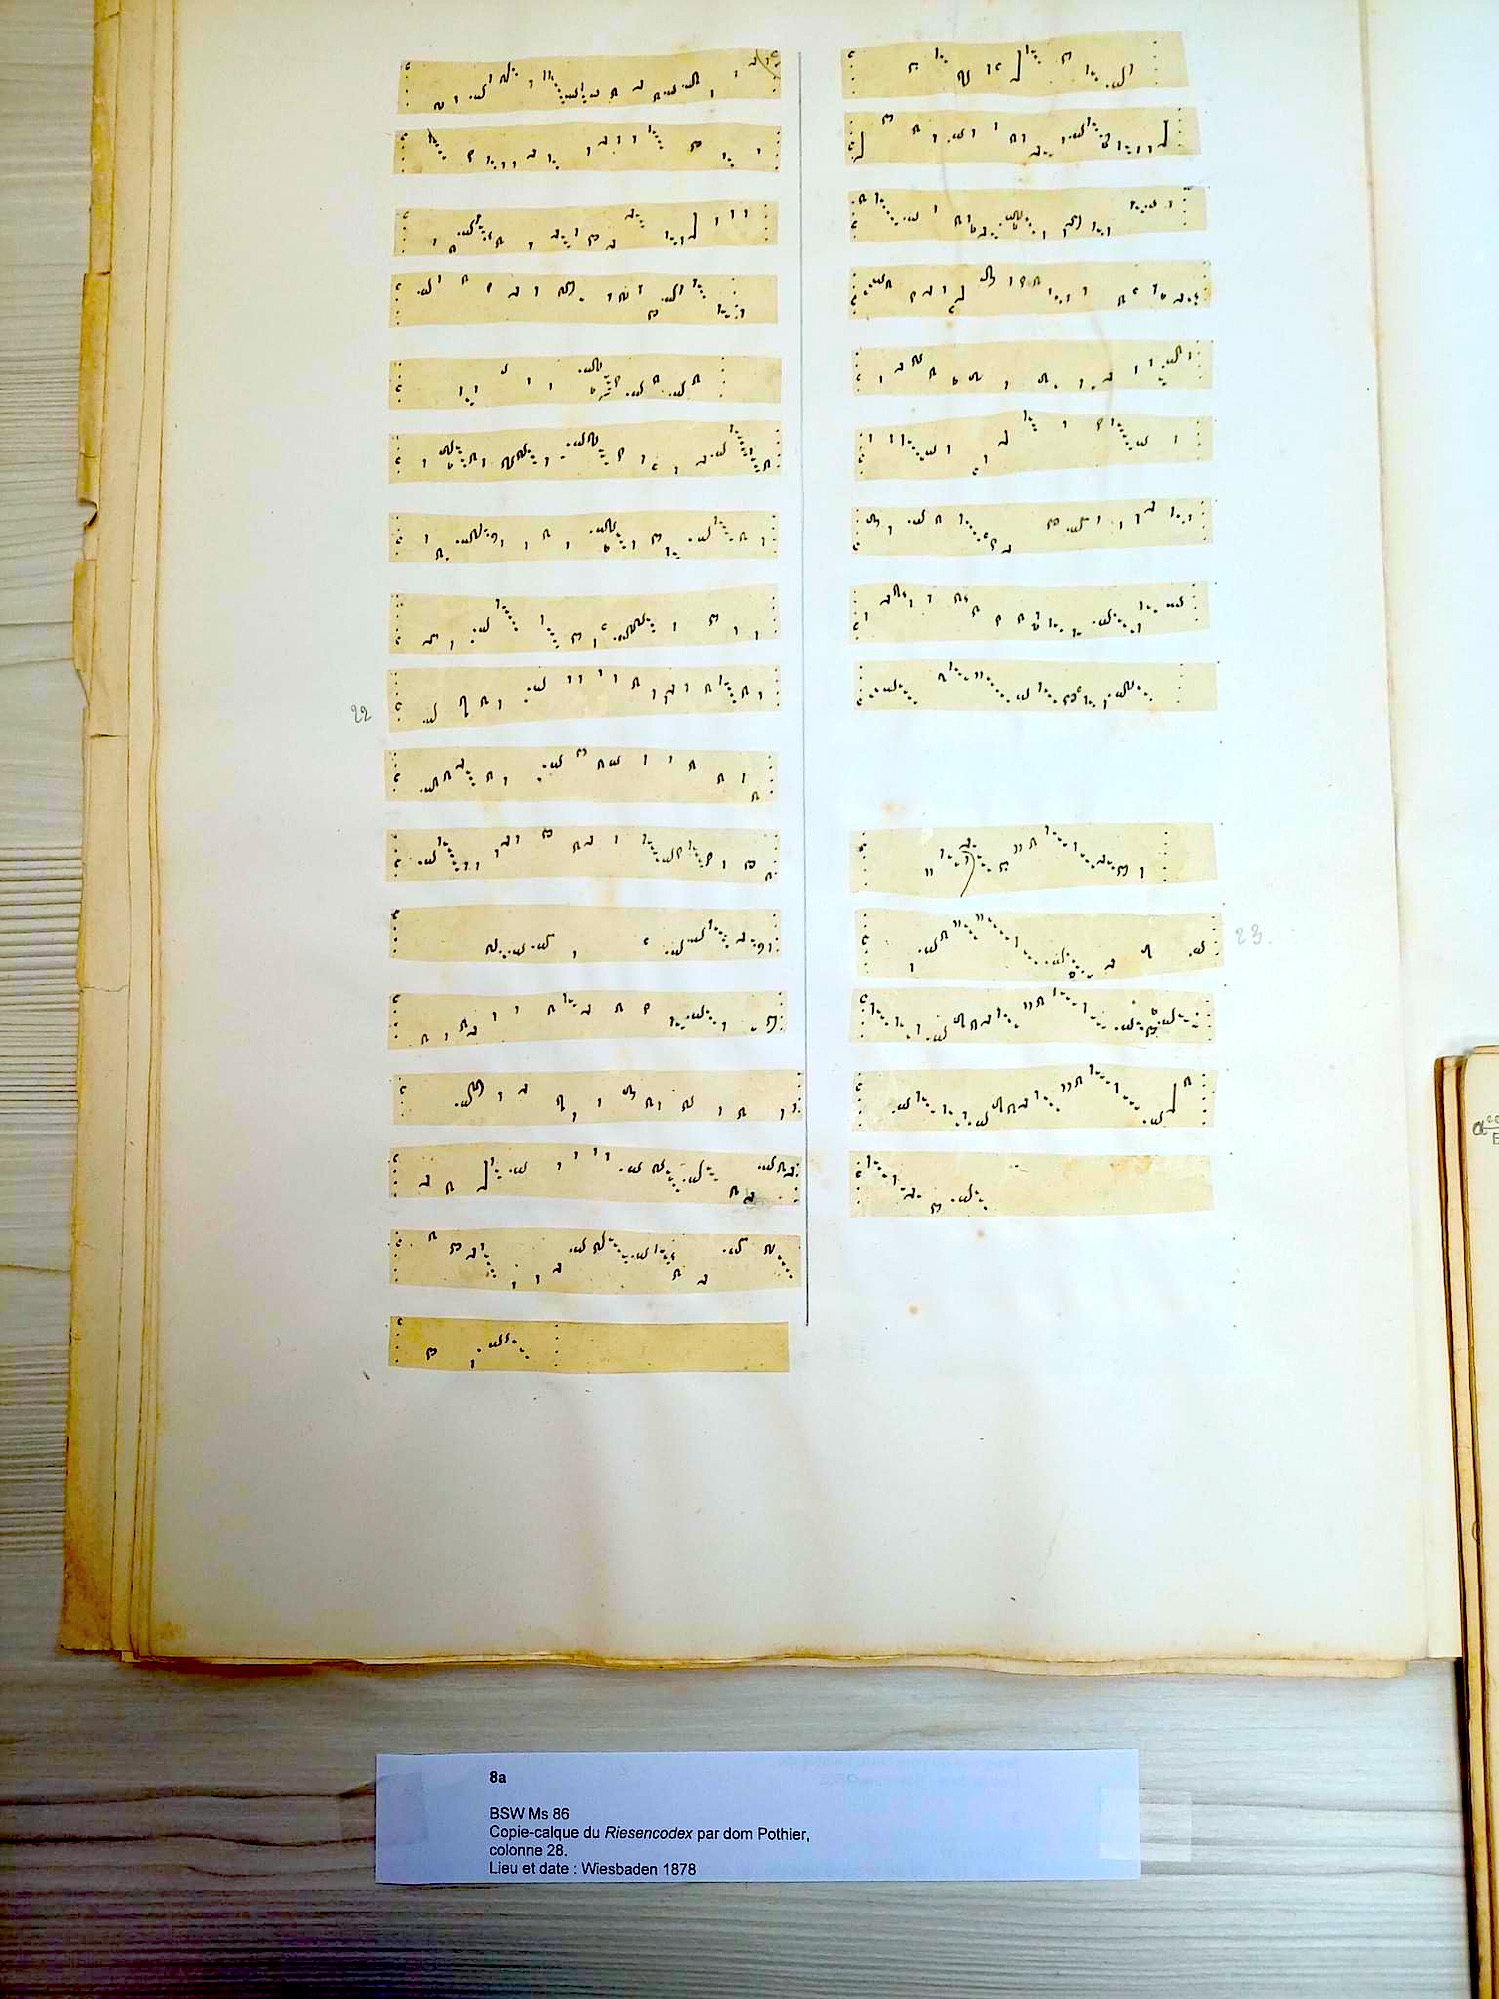 22
23.
8a
BSW Ms 86
Copie-calque du Riesencodex par dom Pothier,
colonne 28.
Lieu et date : Wiesbaden 1878